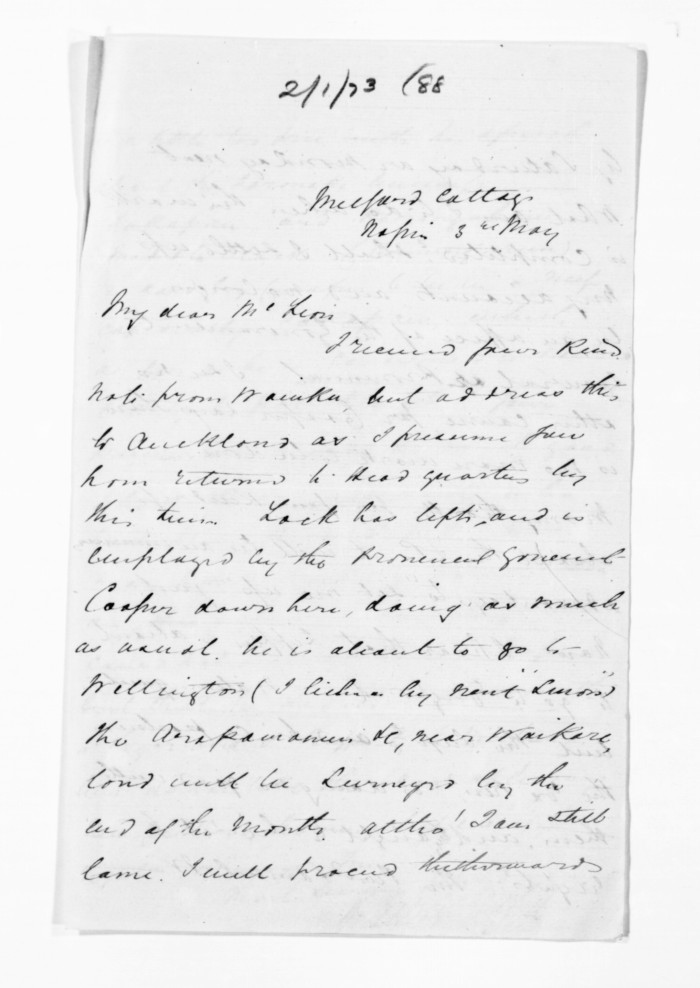 2/1/73 (88
Milford Cottage
Napier 3rd May
My dear Mc Lean
I received your kind
note from Waiuku, but address this
to Auckland as I presume you
have returned to Head quarters by
this time. Lock has left, and is
employed by the Provincial Government
Cooper down here, doing as much
as usual. he is about to go to
Wellington (I believe by next "Luna")
the &c, near Waikare,
land will be surveyed by the
end of the month. altho' I am still
lame. I will proceed thitherwards